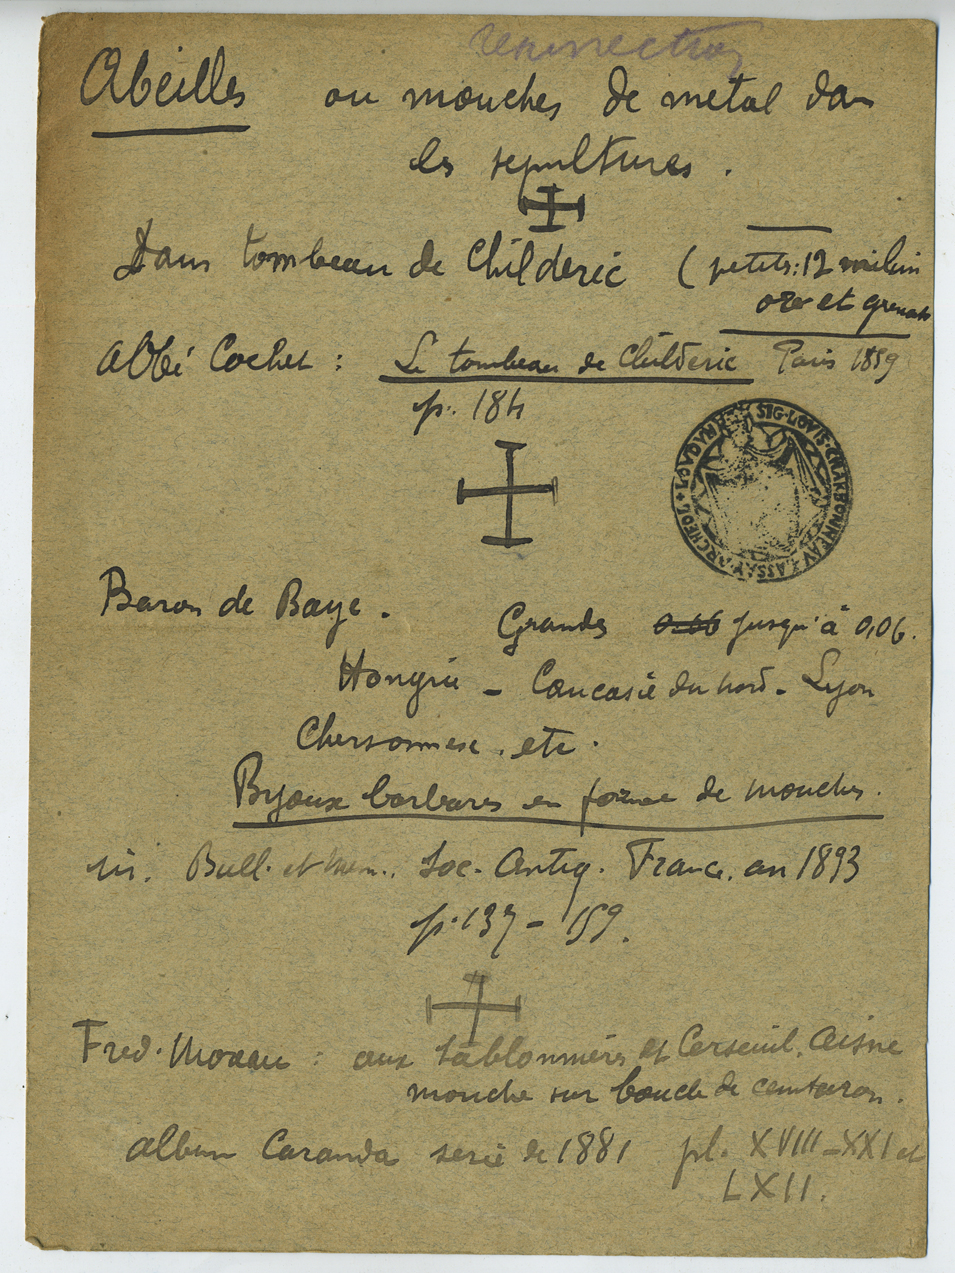 resurrection
Abeilles ou mouches de métal dans
les sepultures.
Dans tombeau de Childéric (petits: 12 milim
or et grenats
Abbé Cochet : Le tombeau de Childeric Paris 1859
p. 184
SIG·LOVIS·CHARBONNEAV·LASSAY·ARCHEOL·LOVDVN
Baron de Baye. Grandes 0.66 jusqu'à 0,06.
Hongrie - Caucasie du nord - Lyon
Chersonnese. etc.
Bijoux barbares en forme de mouches.
in. Bull. et Mem. Soc. Antiq. France. an 1893
p. 137 - 159.
Fred. Moreau : aux sablonnières et Cerseuil. Aisne
mouche sur boucle de ceinturon.
album Caranda serie de 1881 pl. XVIII - XXI et
LXII.